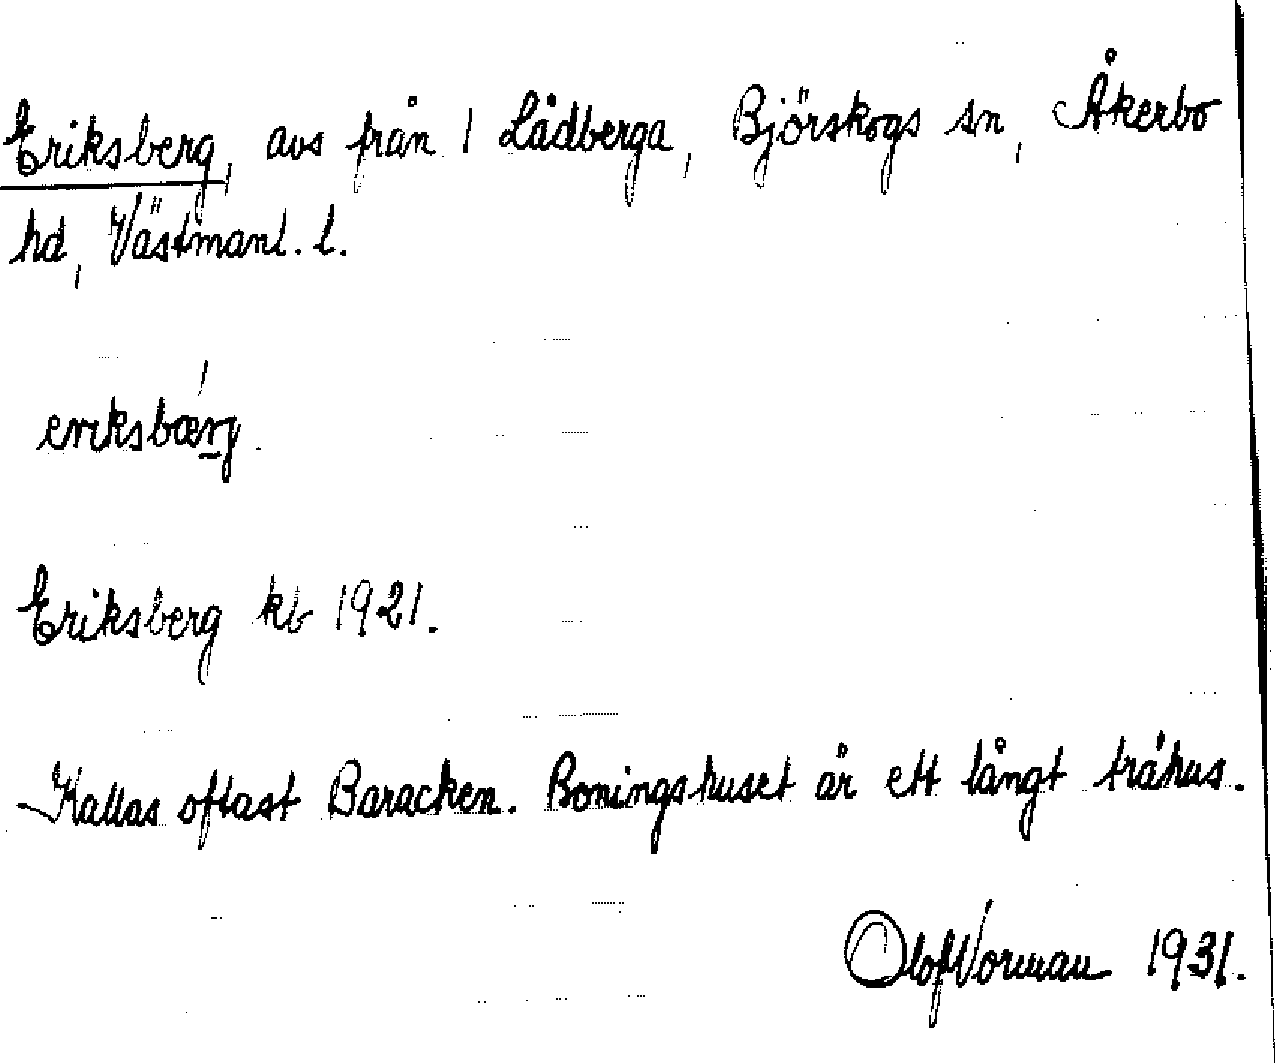 Eriksberg, avs från 1 Lådberga, Björskogs sn, Åkerbo
hd, Västmanl. l.
eriksbærg.
Eriksberg kb 1921.
Kallas oftast Baracken. Boningshuset är ett långt trähus.
Olof Vorman 1931.